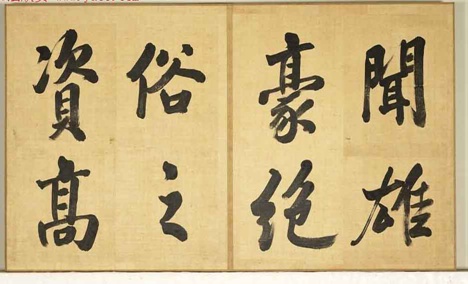 聞雄
豪絶
俗之
資高